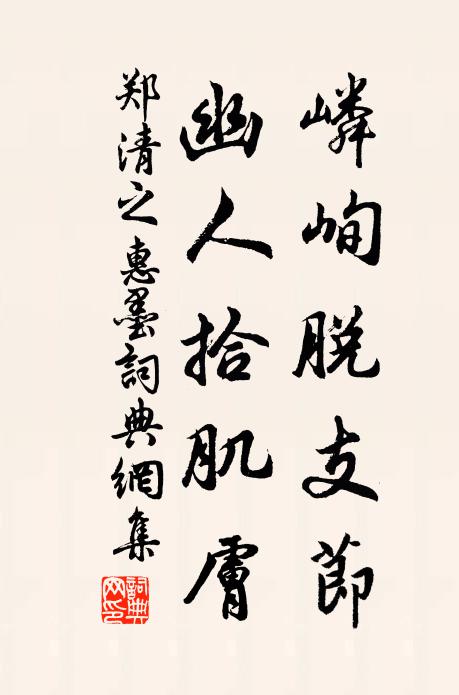 嶙峋脫支節
幽人拾肌膚
郑清之惠墨詞典網集
詞典网印